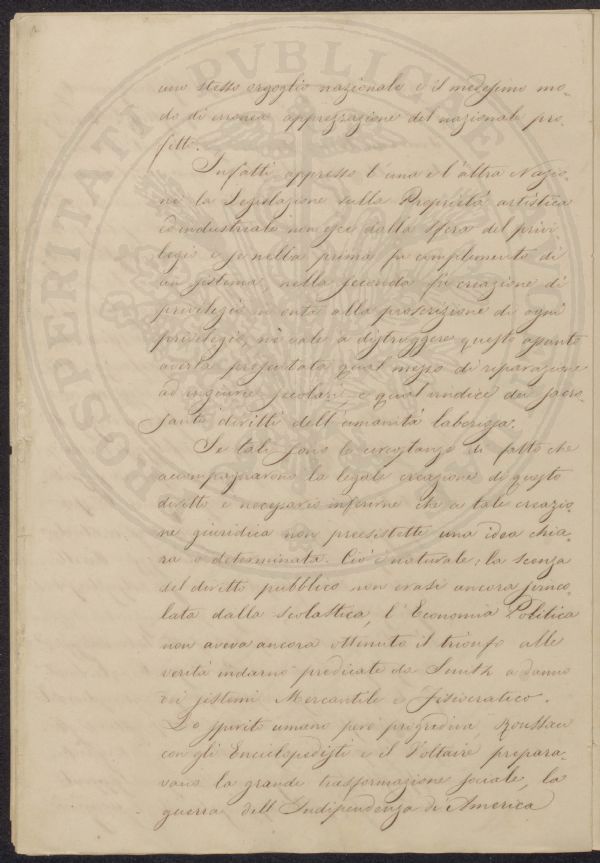 uno stesso orgoglio nazionale e il medesimo mo-
do di erronea apprezzazione del nazionale pro-
fitto.
Infatti appresso l'una e l'altra Nazio-
ne la Legislazione sulla Proprietà artistica
ed industriale non esce dalla sfera del privi-
legio e se nella prima fu complemento di
un sistema, nella seconda fu creazione di
privilegio in onta alla proscrizione di ogni
privilegio, nè vale a distruggere questo assunto
averla presentata qual mezzo di riparazione
ad ingiurie secolari, e qual vindice dei sacro-
santi diritti dell'umanità laboriosa.
Se tali sono le circostanze di fatto che
accompagnarono la legale creazione di questo
diritto è necessario inferirne che a tale creazio-
ne giuridica non preesistette una idea chia-
ra e determinata. Ciò è naturale; la scienza
del diritto pubblico non erasi ancora svinco-
lata dalla scolastica, l'Economia Politica
non aveva ancora ottenuto il trionfo alle
verità indarno predicate da Smith a danno
dei sistemi Mercantile e Fisiocratico.
Lo spirito umano però progrediva, Roussau
con gli Enciclopedisti e il Voltaire prepara-
vano la grande trasformazione sociale, la
guerra dell'Indipendenza di America
PROSPERITATI PVBLICAE